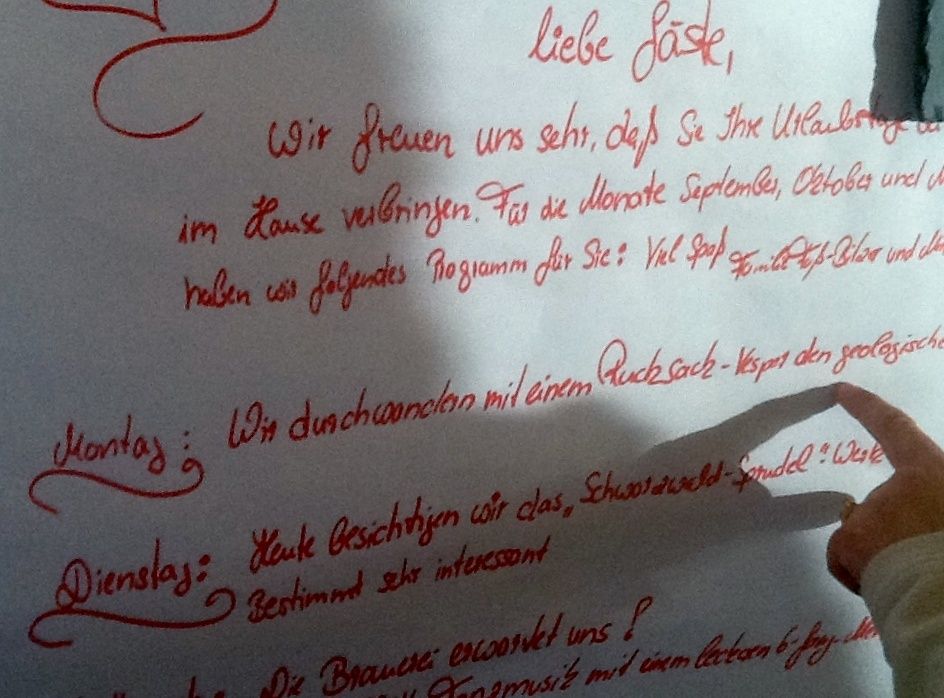 liebe Gäste,
Wir freuen uns sehr, daß Sie Ihre Urlaubstage
im Hause verbringen. Für die Monate September, Oktober und
haben wir folgendes Programm für Sie: Viel Spaß und
Montag: Wir durchwandern mit einem Rucksack-Vesper den geologische
Dienstag: Heute besichtigen wir das „Schwarzwald-Sprudel" Werk
Bestimmt sehr interessant
Die Brauerei erwartet uns!
Tanzmusik mit einem leckeren 6-Gang-Me